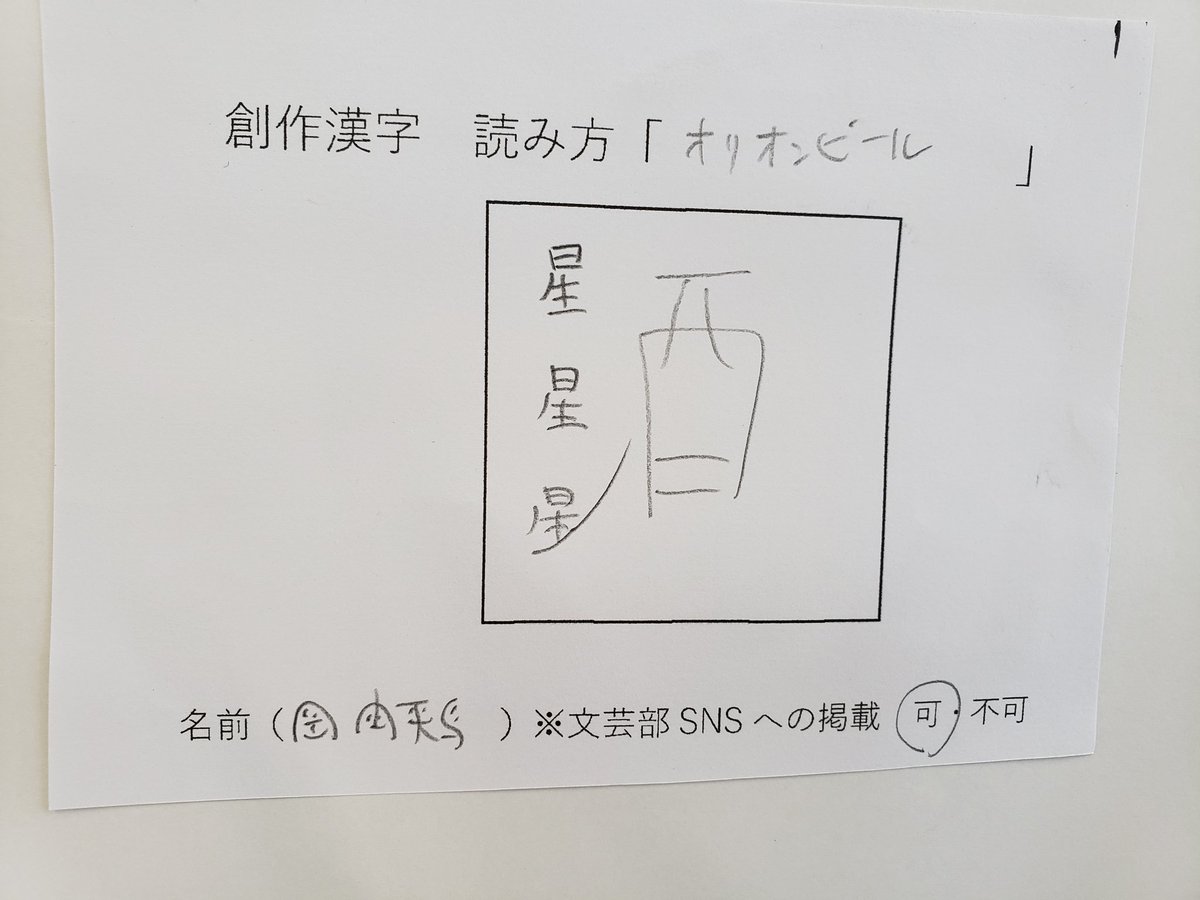 創作漢字 読み方「オリオンビール」
星 酉
星
星
名前（岡内 ）※文芸部SNSへの掲載 可・不可